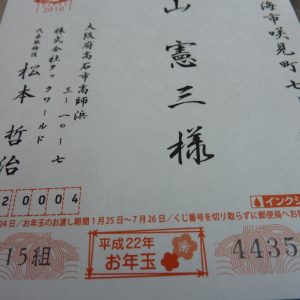 2010
海市咲見町七
山 憲三 様
大阪府高石市高師浜
三-一〇-七
株式会社タックワールド
代表取締役
松本 哲治
20004
インクジ
24日/お年玉のお渡し期間1月25日~7月26日/くじ番号を切り取らずに郵便局へお
15組
平成22年
お年玉
4435